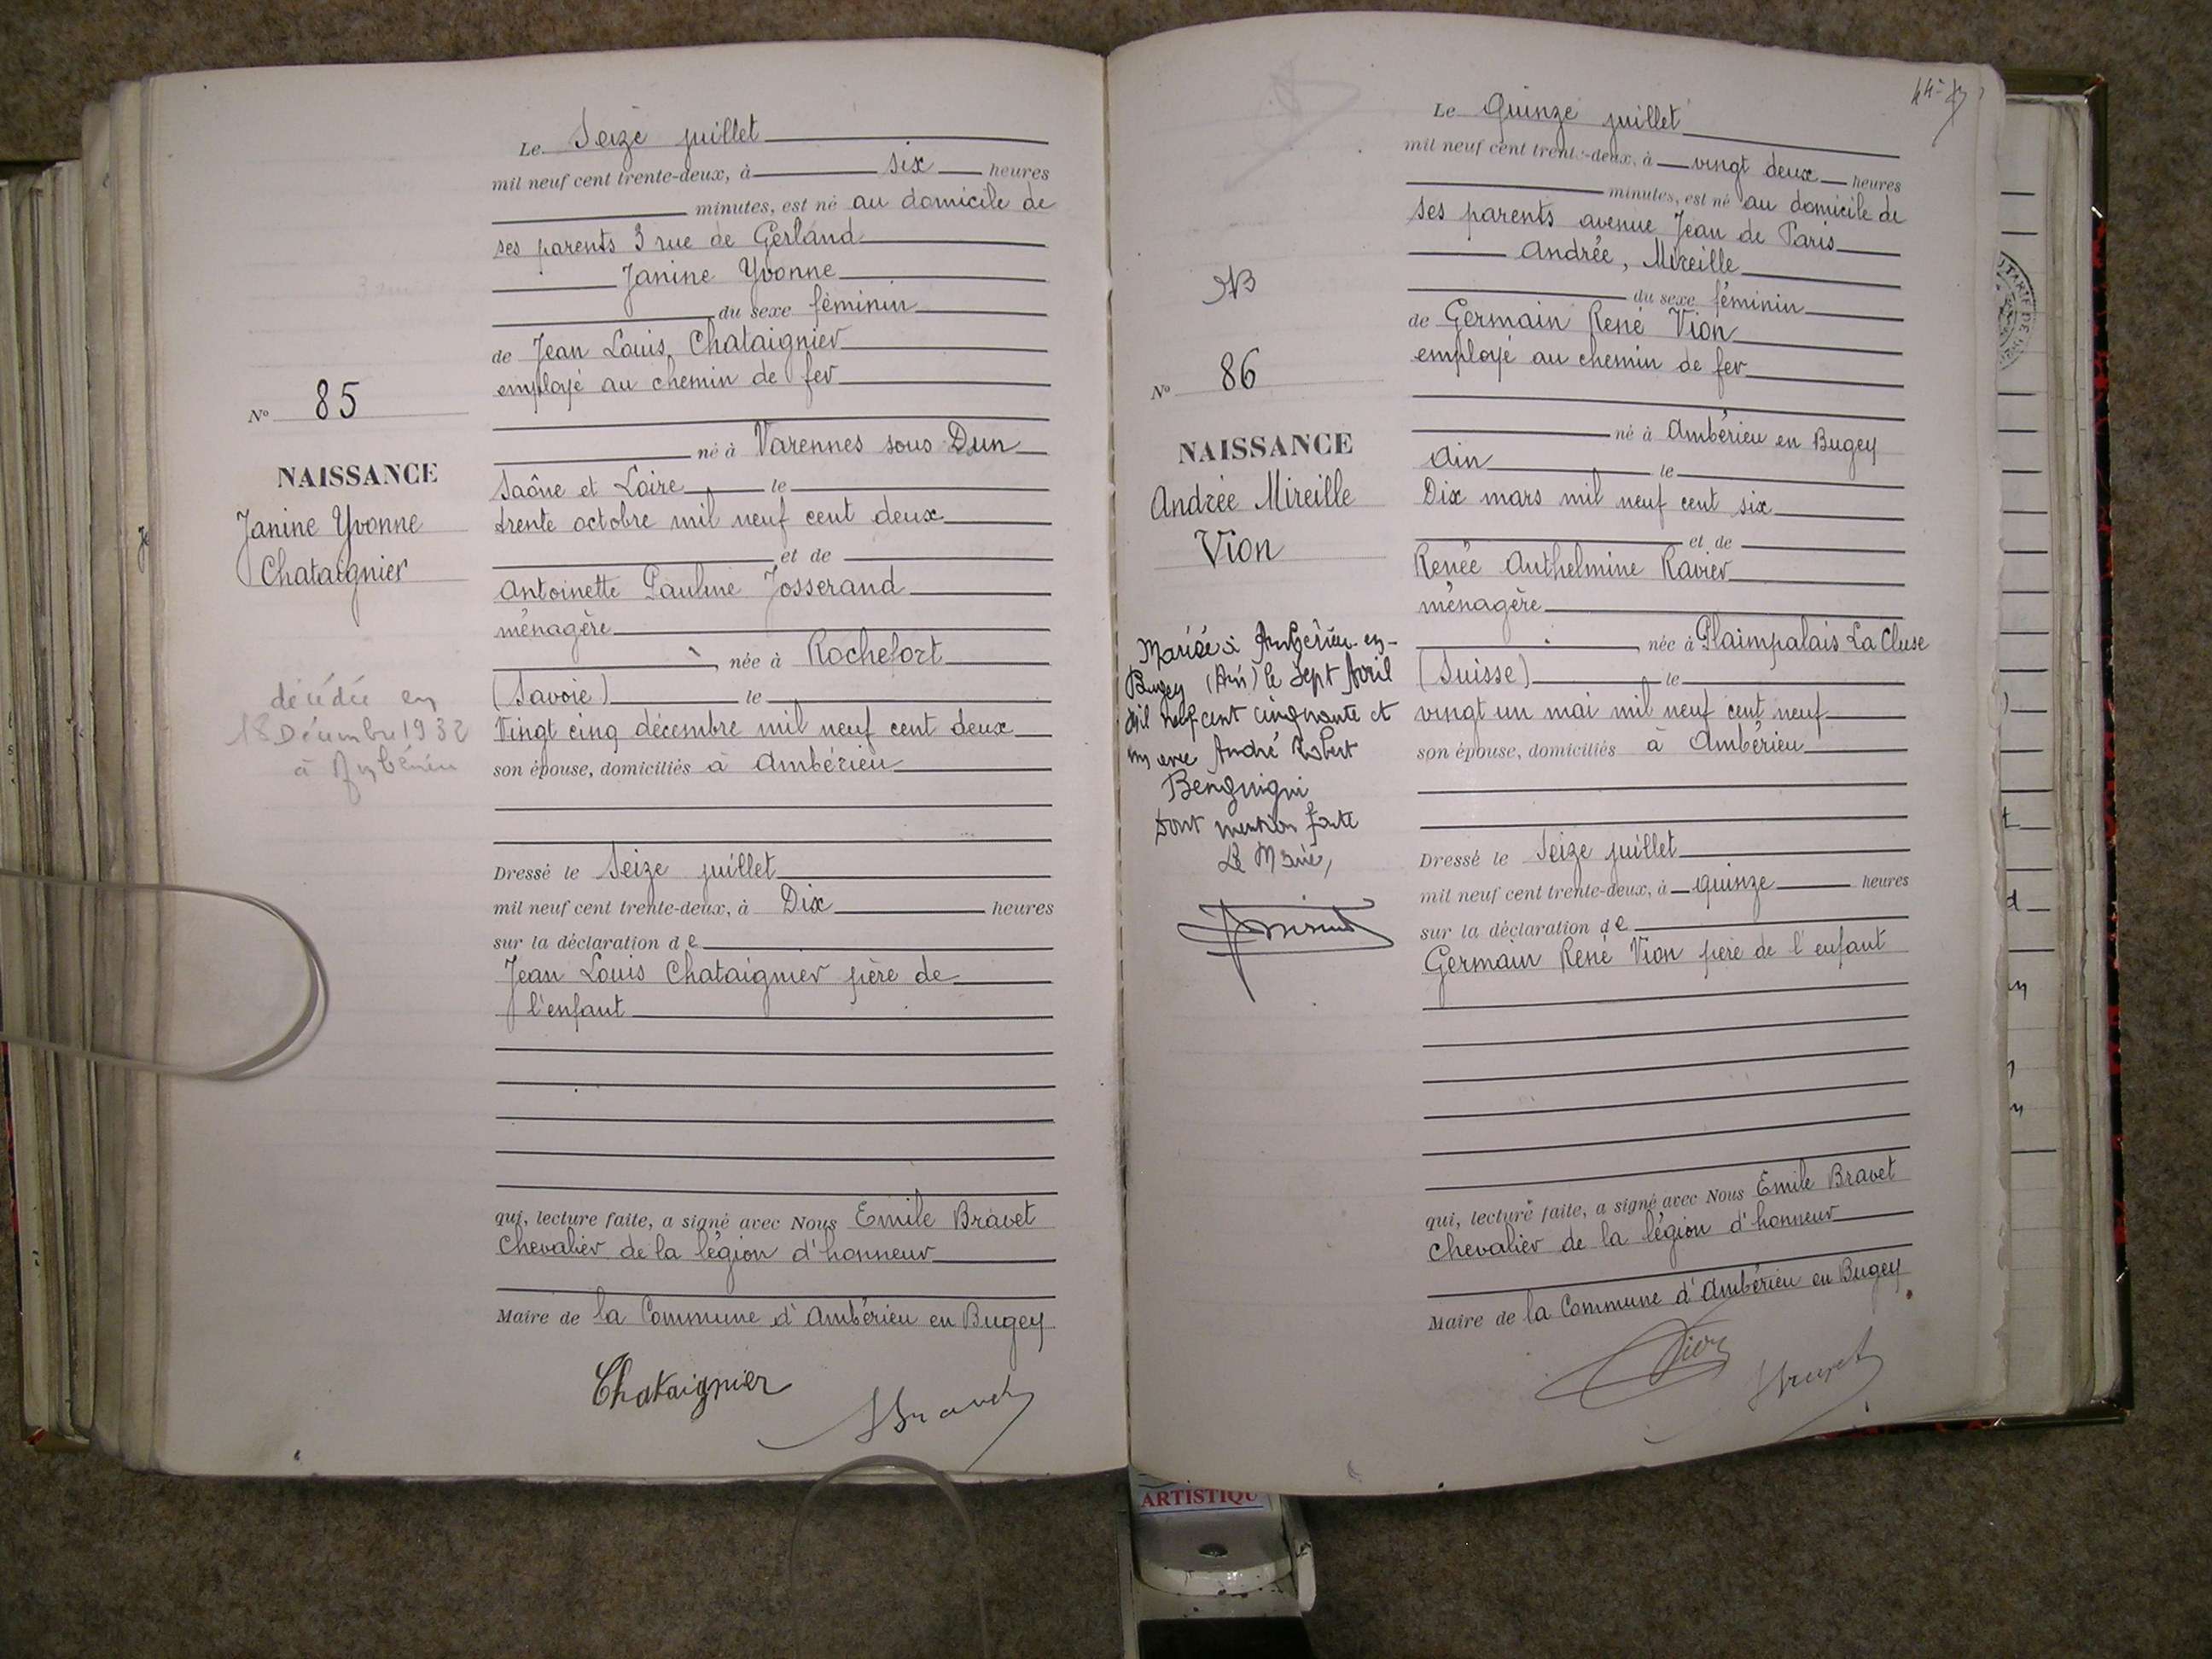 Le Seize juillet
mil neuf cent trente-deux, à six heures
minutes, est né au domicile de
ses parents 3 rue de Gerland
Janine Yvonne
du sexe féminin
de Jean Louis Chataignier
employé au chemin de fer
né à Varennes sous Dun
Saône et Loire le
trente octobre mil neuf cent deux
et de
Antoinette Pauline Josserand
ménagère
née à Rochefort
(Savoie) le
Vingt cinq décembre mil neuf cent deux
son épouse, domiciliés à Ambérieu
Dressé le Seize juillet
mil neuf cent trente-deux, à Dix heures
sur la déclaration de
Jean Louis Chataignier père de
l'enfant
qui, lecture faite, a signé avec Nous Emile Bravet
Chevalier de la légion d'honneur
Maire de la Commune d'Ambérieu en Bugey
Chataignier
Bravet
No 85
NAISSANCE
Janine Yvonne
Chataignier
décédée en
18 Décembre 1932
à Ambérieu
Le Quinze juillet
mil neuf cent trente-deux, à vingt deux heures
minutes, est né au domicile de
ses parents avenue Jean de Paris
Andrée, Mireille
du sexe féminin
de Germain René Vion
employé au chemin de fer
né à Ambérieu en Bugey
Ain le
Dix mars mil neuf cent six
et de
Renée Anthelmine Ravier
ménagère
née à Plaimpalais La Cluse
(Suisse) le
vingt un mai mil neuf cent neuf
son épouse, domiciliés à Ambérieu
Dressé le Seize juillet
mil neuf cent trente-deux, à quinze heures
sur la déclaration de
Germain René Vion père de l'enfant
qui, lecture faite, a signé avec Nous Emile Bravet
Chevalier de la légion d'honneur
Maire de la Commune d'Ambérieu en Bugey
Vion
Bravet
No 86
NAISSANCE
Andrée Mireille
Vion
Mariée à Ambérieu-en-
Bugey (Ain) le sept Avril
mil neuf cent cinquante et
un avec André Robert
Benguigui
Dont mention faite
Le Maire,
ARTISTIQU